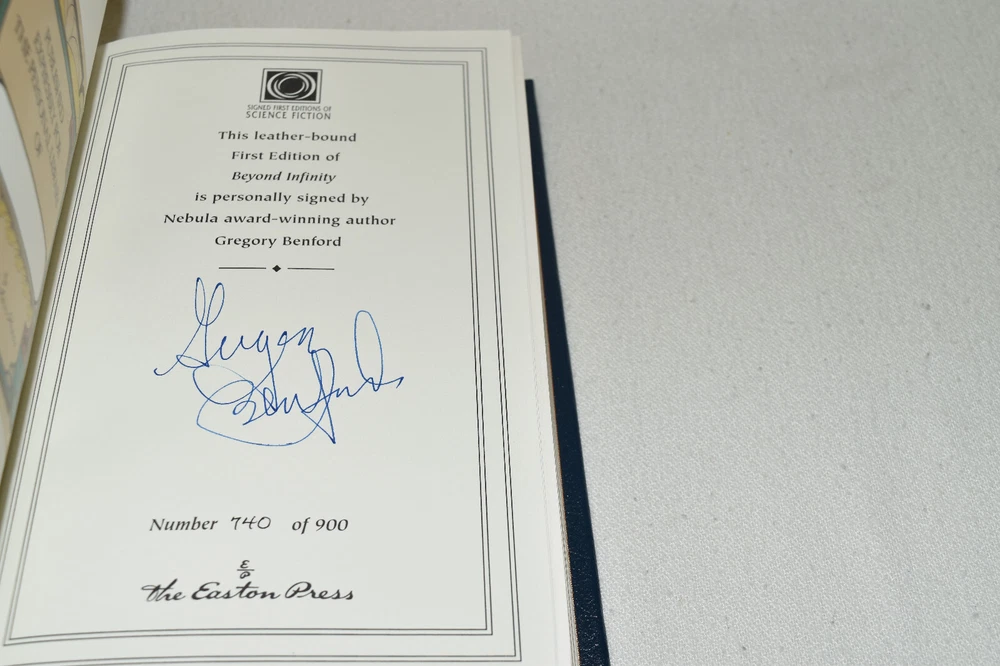 SIGNED FIRST EDITIONS OF
SCIENCE FICTION
This leather-bound
First Edition of
Beyond Infinity
is personally signed by
Nebula award-winning author
Gregory Benford
Gregory
Benford
Number 740 of 900
E
P
the Easton Press